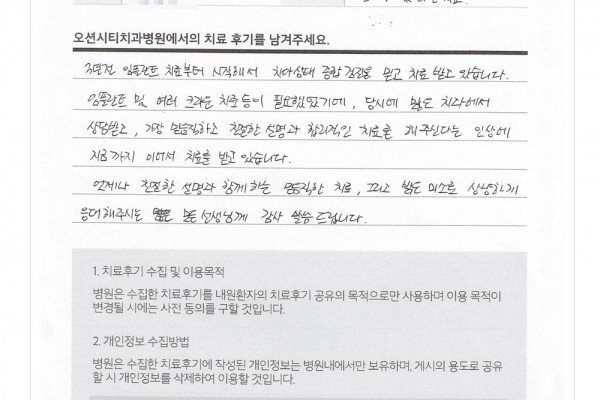 오션시티치과병원에서의 치료 후기를 남겨주세요.
임플란트 치료부터 시작해서 치아상태 종합검진을 받고 치료 받고 있습니다.
임플란트 및 여러 크라운 치료 등이 필요했었기에, 당시에 많은 치과에서
상담받고, 가장 믿음직하고 친절한 설명과 합리적인 치료를 해주신다는 인상에
지금까지 이어서 치료를 받고 있습니다.
언제나 친절한 설명과 함께하는 믿음직한 치료, 그리고 밝은 미소로 상냥하게
응대해주시는 모든 선생님께 감사 말씀 드립니다.
1. 치료후기 수집 및 이용목적
병원은 수집한 치료후기를 내원환자의 치료후기 공유의 목적으로만 사용하며 이용 목적이
변경될 시에는 사전 동의를 구할 것입니다.
2. 개인정보 수집방법
병원은 수집한 치료후기에 작성된 개인정보는 병원내에서만 보유하며, 게시의 용도로 공유
할 시 개인정보를 삭제하여 이용할 것입니다.